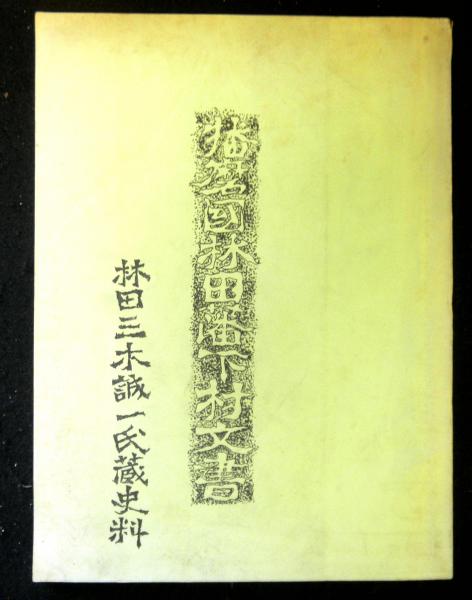 播磨國林田藩下村文書
林田三木誠一氏蔵史料